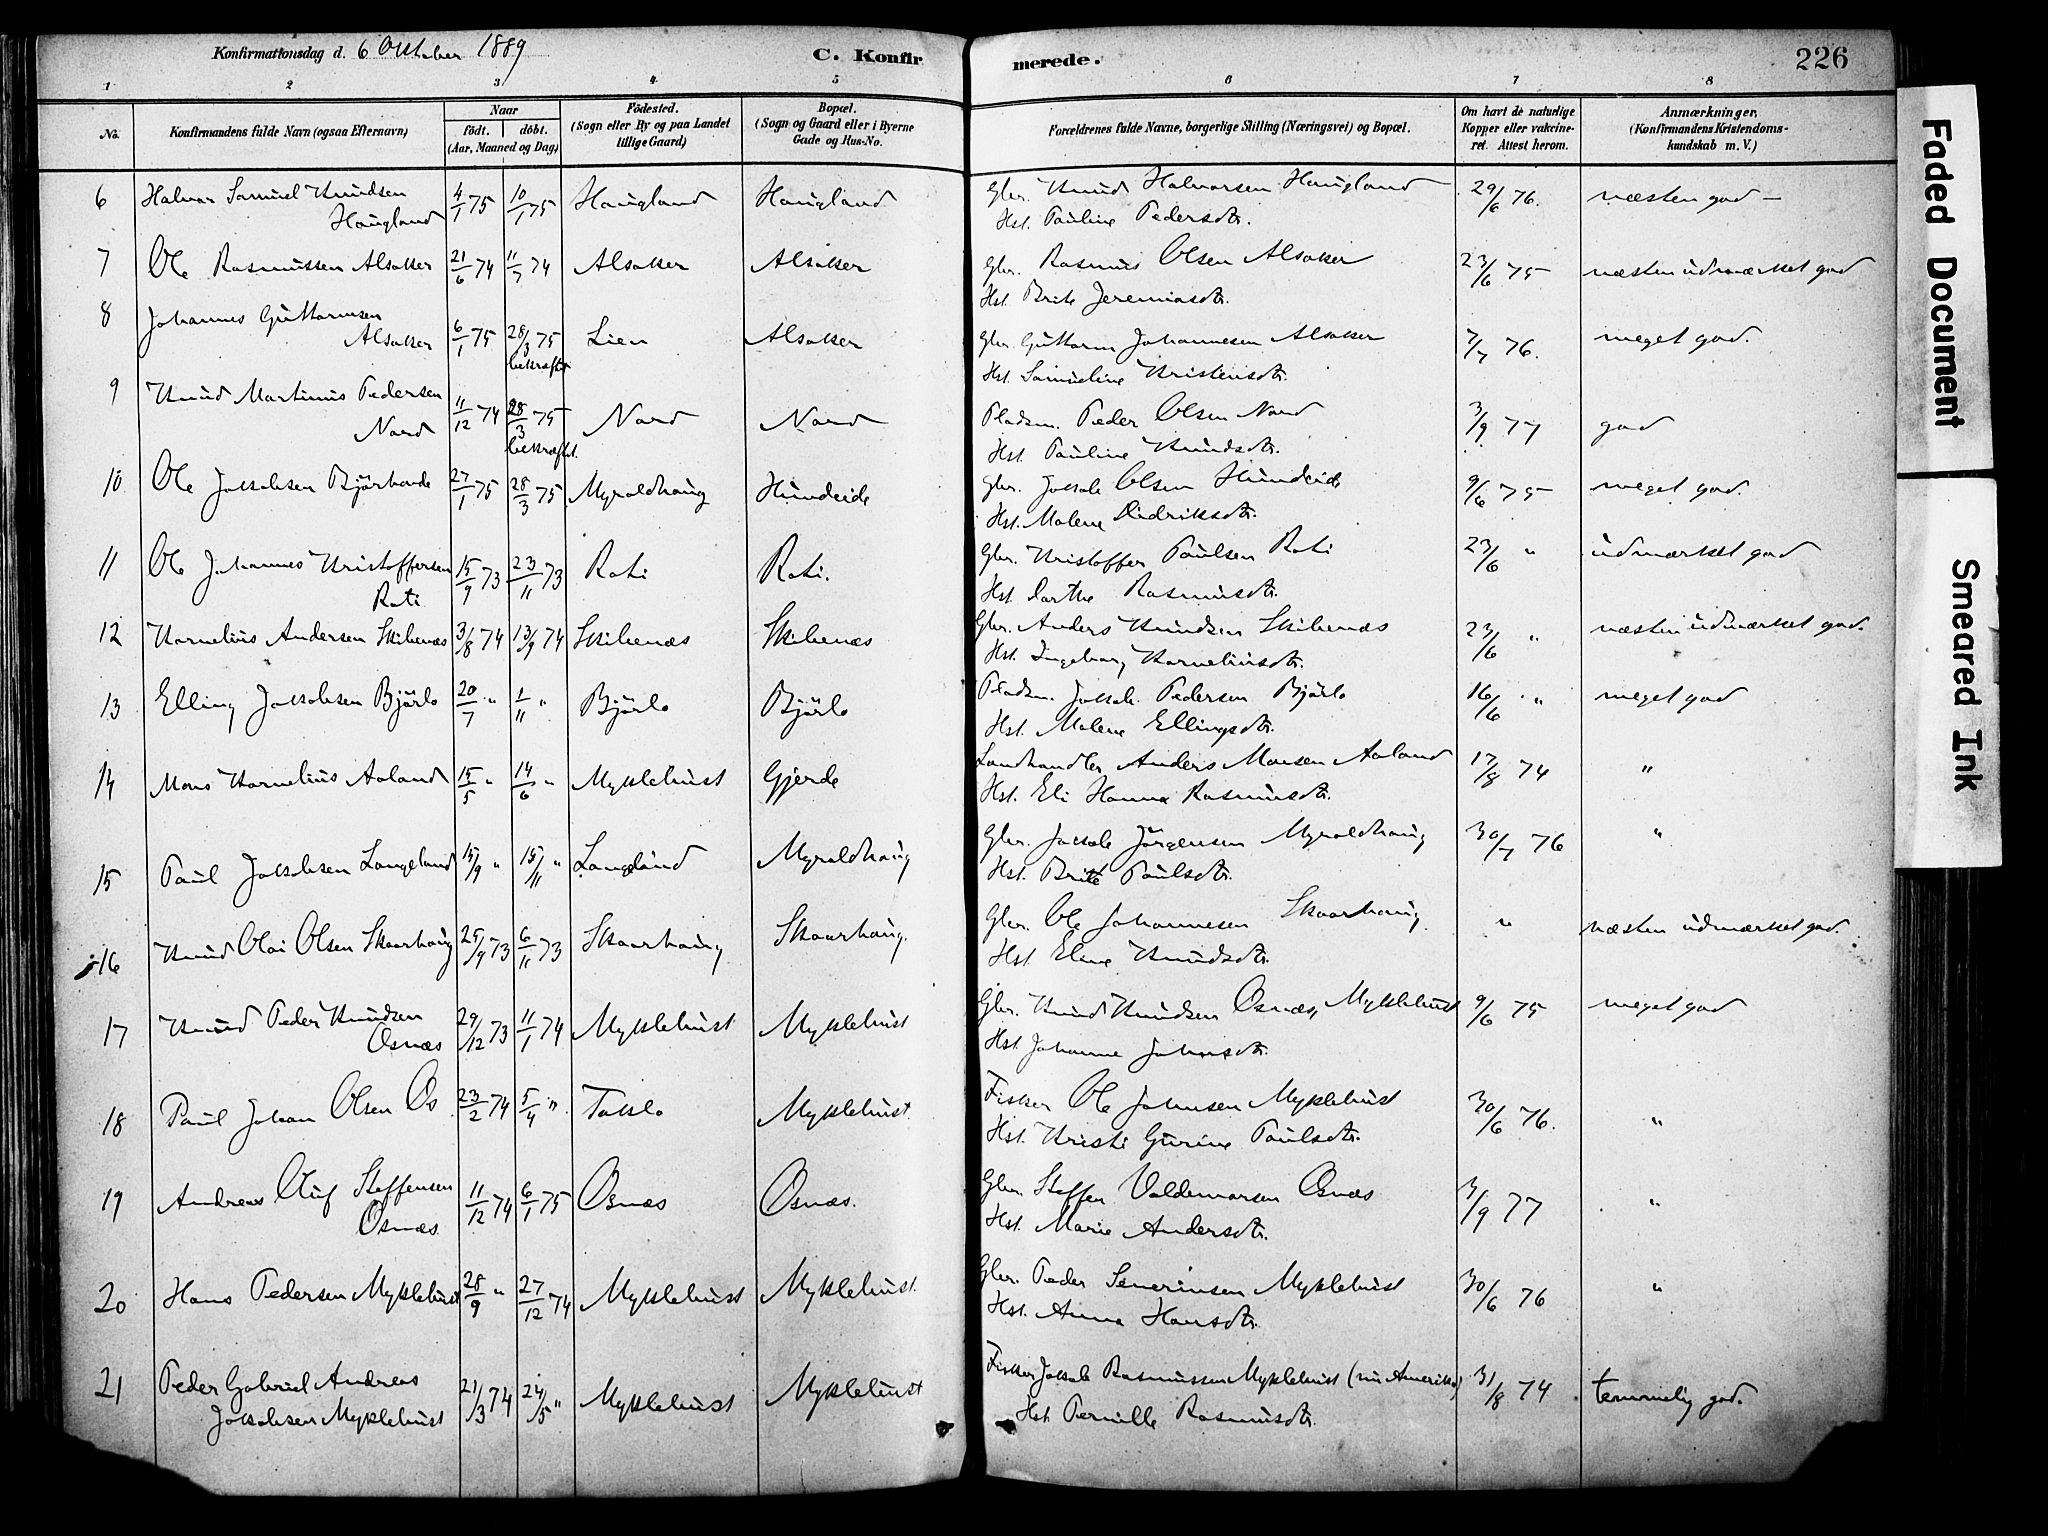 Konfirmationsdag d. 6 Oktober 1889
C. Konfirmerede.
226
1 2 3 4 5 6 7 8
No.
Konfirmandens fulde Navn (ogsaa Efternavn)
Naar
født. døbt.
(Aar, Maaned og Dag)
Fødested.
(Sogn eller By og paa Landet
tillige Gaard)
Bopæl.
(Sogn og Gaard eller i Byerne
Gade og Hus-No.
Forældrenes fulde Navne, borgerlige Stilling (Næringsvei) og Bopæl.
Om havt de naturlige
Kopper eller vakcine-
ret. Attest herom.
Anmærkninger.
(Konfirmandens Kristendoms-
kundskab m. V.)
6 Halvor Samuel Knudsen 4/1 75 10/1 75 Haugland Haugland Gbr. Knud Halvorsen Haugland 29/6 76. næsten god –
Haugland Hst. Pauline Pedersdtr.
7 Ole Rasmussen Alsaker 21/6 74 11/7 74 Alsaker Alsaker Gbr. Rasmus Olsen Alsaker 23/6 75 næsten udmærket god
Hst. Brite Jeremiasdtr.
8 Johannes Guttormsen
Alsaker 6/1 75 28/3 75 Lien Alsaker Gbr. Guttorm Johannesen Alsaker 7/7 76. meget god.
bekræftet Hst. Samueline Kristensdtr.
9 Knud Martinus Pedersen
Nord 11/12 74 28/3 75 Nord Nord Pladsm. Peder Olsen Nord 3/9 77 god
bekræftet. Hst. Pauline Knudsdtr.
10 Ole Jakobsen Bjørhovde 27/1 75 28/3 75 Myroldhaug Hundeide Gbr. Jakob Olsen Hundeide 9/6 75 meget god.
Hst. Malene Didriksdtr.
11 Ole Johannes Kristoffersen 15/9 73 23/11 73 Roti Roti. Gbr. Kristoffer Paulsen Roti 23/6 " udmærket god
Roti Hst. Dorthe Rasmusdtr.
12 Kornelius Andersen Skibenæs 3/8 74 13/9 74 Skibenæs Skibenæs Gbr. Anders Knudsen Skibenæs 23/6 " næsten udmærket god.
Hst. Ingeborg Korneliusdtr.
13 Elling Jakobsen Bjørlo 20/7 " 1/11 " Bjørlo Bjørlo Pladsm. Jakob Pedersen Bjørlo 16/6 " meget god
Hst. Malene Ellingsdtr.
14 Mons Kornelius Aaland 15/5 " 14/6 " Myklebust Gjerde Landhandler Anders Monsen Aaland 17/8 74 "
Hst. Eli Hanna Rasmusdtr.
15 Paul Jakobsen Langeland 15/9 " 15/11 " Langeland Myroldhaug Gbr. Jakob Jørgensen Myroldhaug 30/7 76 "
Hst. Brite Paulsdtr.
16 Knud Olai Olsen Skaarhaug 25/9 73 6/11 73 Skaarhaug Skaarhaug. Gbr. Ole Johannesen Skaarhaug " næsten udmærket god.
Hst. Eline Knudsdtr.
17 Knud Peder Knudsen 29/12 73 11/1 74 Myklebust Myklebust Gbr. Knud Knudsen Osnæs, Myklebust 9/6 75 meget god
Osnæs Hst. Johanne Johnsdtr.
18 Paul Johan Olsen Os 23/2 74 5/4 " Taklo Myklebust Fisker Ole Johnsen Myklebust 30/6 76. "
Hst. Kristi Gurine Paulsdtr.
19 Andreas Oluf Steffensen 11/12 74 6/1 75 Osnæs Osnæs. Gbr. Steffen Valdemarsen Osnæs 3/9 77 "
Osnæs Hst. Marie Andersdtr.
20 Hans Pedersen Myklebust 28/9 " 27/12 74 Myklebust Myklebust. Gbr. Peder Severinsen Myklebust 30/6 76 "
Hst. Anna Hansdtr.
21 Peder Gabriel Andreas 21/3 74 24/5 " Myklebust Myklebust Fisker Jakob Rasmussen Myklebust (nu Amerika) 31/8 74 temmelig god.
Jakobsen Myklebust Hst. Pernille Rasmusdtr.
Faded Document
Smeared Ink